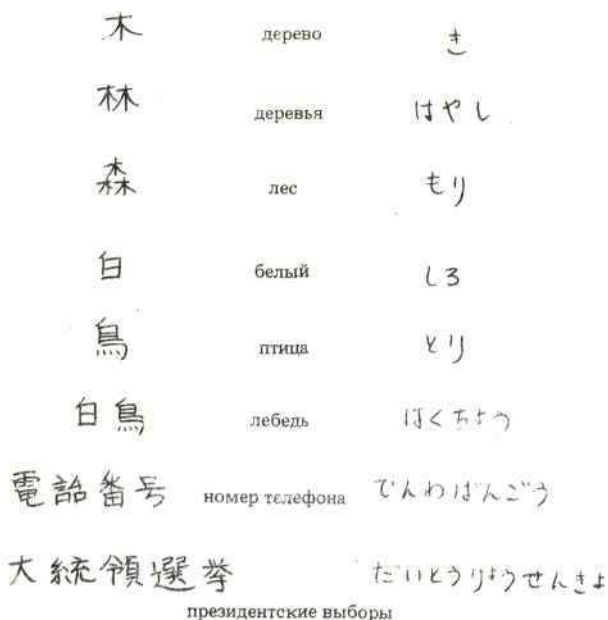 木 дерево き
林 деревья はやし
森 лес もり
白 белый しろ
鳥 птица とり
白鳥 лебедь はくちょう
電話番号 номер телефона でんわばんごう
大統領選挙 だいとうりょうせんきょ
президентские выборы